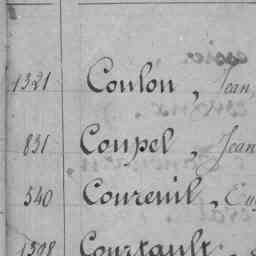 1321 Coulon, Jean
831 Coupel, Jean
540 Coureuil, Eug
1398 Courtault